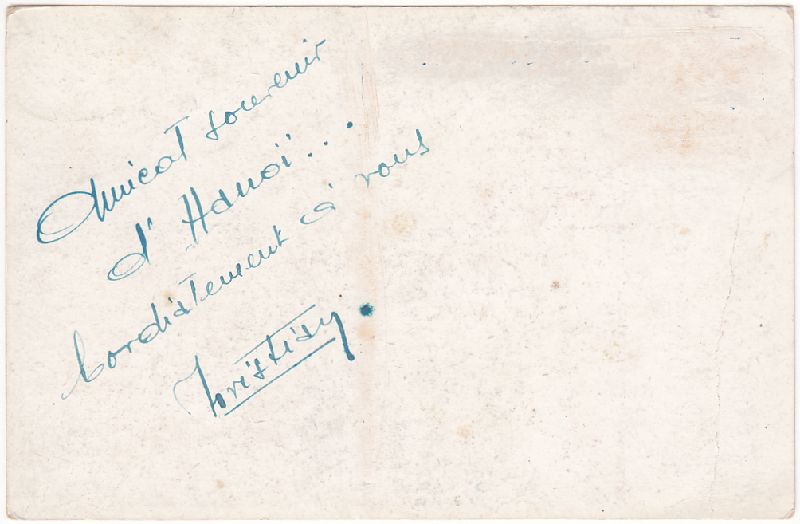 Amical souvenir
d'Hanoï...
Cordialement à vous
Christian